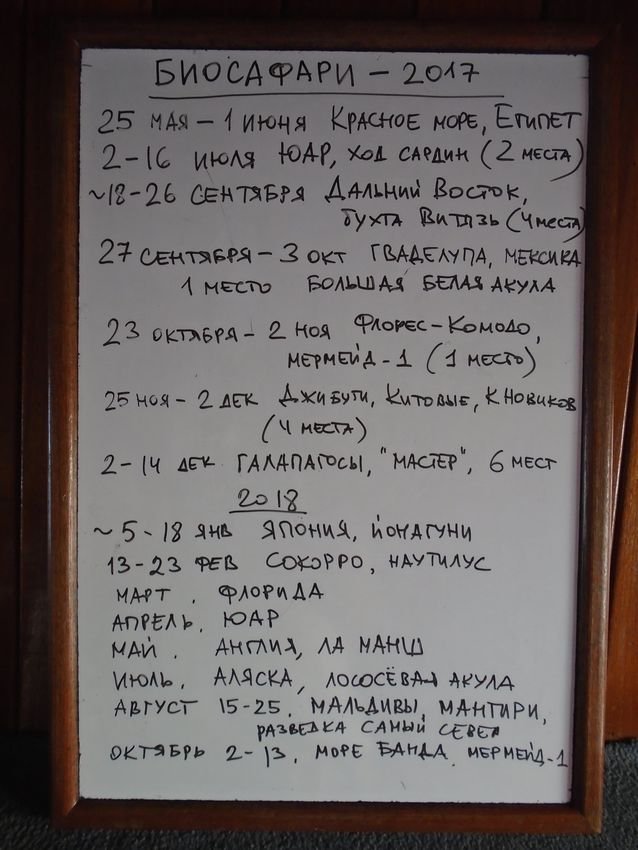 БИОСАФАРИ – 2017
25 МАЯ – 1 ИЮНЯ КРАСНОЕ МОРЕ, ЕГИПЕТ
2-16 ИЮЛЯ ЮАР, ХОД САРДИН (2 МЕСТА)
~18-26 СЕНТЯБРЯ ДАЛЬНИЙ ВОСТОК,
БУХТА ВИТЯЗЬ (4 МЕСТА)
27 СЕНТЯБРЯ – 3 ОКТ ГВАДЕЛУПА, МЕКСИКА
1 МЕСТО БОЛЬШАЯ БЕЛАЯ АКУЛА
23 ОКТЯБРЯ – 2 НОЯ ФЛОРЕС-КОМОДО,
МЕРМЕЙД-1 (1 МЕСТО)
25 НОЯ – 2 ДЕК ДЖИБУТИ, КИТОВЫЕ, К НОВИКОВ
(4 МЕСТА)
2-14 ДЕК ГАЛАПАГОСЫ, "МАСТЕР", 6 МЕСТ
2018
~ 5-18 ЯНВ ЯПОНИЯ, ЙОНАГУНИ
13-23 ФЕВ СОКОРРО, НАУТИЛУС
МАРТ, ФЛОРИДА
АПРЕЛЬ, ЮАР
МАЙ, АНГЛИЯ, ЛА МАНШ
ИЮЛЬ, АЛЯСКА, ЛОСОСЁВАЯ АКУЛА
АВГУСТ 15-25, МАЛЬДИВЫ, МАНТИРИ,
РАЗВЕДКА САМЫЙ СЕВЕР
ОКТЯБРЬ 2-13, МОРЕ БАНДА, МЕРМЕЙД-1